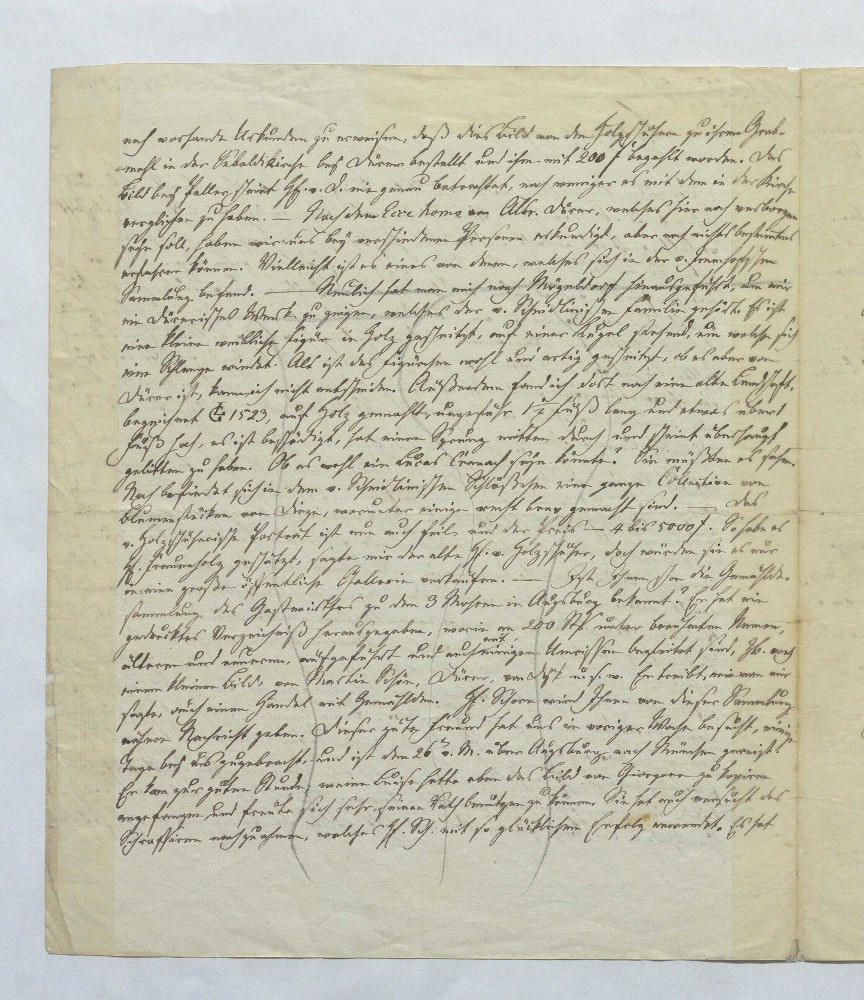 noch vorhandne Urkunden zu erweisen, daß dies Bild von den Holzschuhern zu ihrem Grab-
mahl in der Sebaldikirche bey Dürer bestellt und ihm mit 200 f bezahlt worden. Das
Bild bey Peller scheint H. v. D. nie genau betrachtet, noch weniger es mit dem in der Kirche
verglichen zu haben. — Nach dem Ecce homo von Albr. Dürer, welches hier noch verborgen
seyn soll, haben wir uns bey verschiedenen Personen erkundigt, aber noch nichts bestimmtes
erfahren können. Vielleicht ist es eines von denen, welches sich in der v. Imhofschen
Sammlung befand. — Neulich hat man mich nach Mögeldorf hinausgeführt, um mir
ein Dürerisches Werk zu zeigen, welches der v. Scheidlinischen Familie gehört. Es ist
eine kleine weibliche Figur in Holz geschnitzt, auf einer Kugel stehend, um welche sich
eine Schlange windet. Alt ist das Figürchen wohl und artig geschnitzt, ob es aber von
Dürer ist, kann ich nicht entscheiden. Außerdem fand ich dort noch eine alte Landschaft,
bezeichnet 1523, auf Holz gemahlt, ungefähr 1 1/2 Fuß lang und etwas über 1
Fuß hoch, es ist beschädigt, hat einen Sprung mitten durch und scheint überhaupt
gelitten zu haben. Ob es wohl ein Lucas Cranach seyn könnte? Sie müßten es sehen.
Noch befindet sich in dem v. Scheidlinischen Schlößchen eine ganze Collection von
Blumenstücken von, worunter einige recht brav gemacht sind. — Das
v. Holzschuherische Portrait ist nun auch feil und der Preis — 4 bis 5000 f. So habe es
H. Frauenholz geschätzt, sagte mir der alte H. v. Holzschuher, doch würden sie es nur
an eine große öffentliche Gallerie verkaufen. — Ist Ihnen schon die Gemählde-
sammlung des Gastwirthes zu den 3 Mohren in Augsburg bekannt? Er hat ein
gedrucktes Verzeichniß herausgegeben, worin an 200 Stk unter berühmten Namen,
älteren und neueren, aufgeführt und auch mit einigen Umrissen begleitet sind, Zb. nach
einem kleinen Bild, von Martin Schön, Dürer, van Dyk u. s. w. Er treibt, wie man mir
sagte, auch einen Handel mit Gemählden. H. Schorn wird Ihnen von dieser Sammlung
nähere Nachricht geben. Dieser gute Freund hat uns in voriger Woche besucht, einige
Tage bey uns zugebracht, und ist den 26n v. M. über Augsburg nach München gereist.
Er kam zur guten Stunde, meine Luise hatte eben das Bild von Giorgone zu kopiren
angefangen und freute sich sehr, seinen Rath benutzen zu können. Sie hat auch versucht das
Schraffiren nachzuahmen, welches H. Sch. mit so glücklichem Erfolg anwendet. Es hat